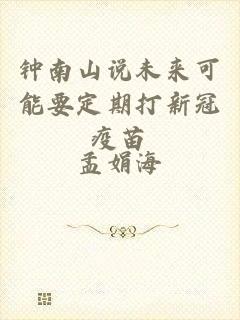 钟南山说未来可
能要定期打新冠
疫苗
孟娟海